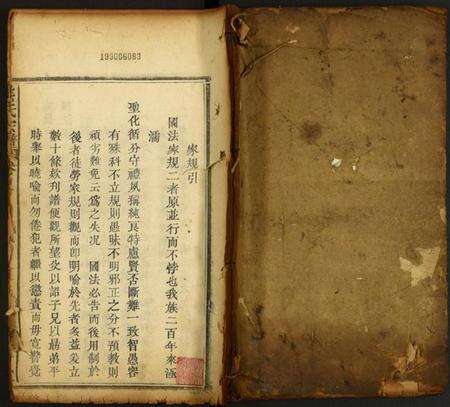 193006083
家規引
國法家規二者原並行而不悖也我族二百年來涵
濡
聖化循分守禮夙稱純良特慮賢否斷難一致智愚容
有殊科不立規則愚昧不明邪正之分不預教則
頑劣難免云爲之失况 國法必告而後用制於
後者徒勞家規則觀而即明喻於先者多益爰立
數十條欵刋譜便觀所望父以詔子兄以勗弟平
時舉以曉喻而勿倦犯者繩以懲責而毋寬將覺